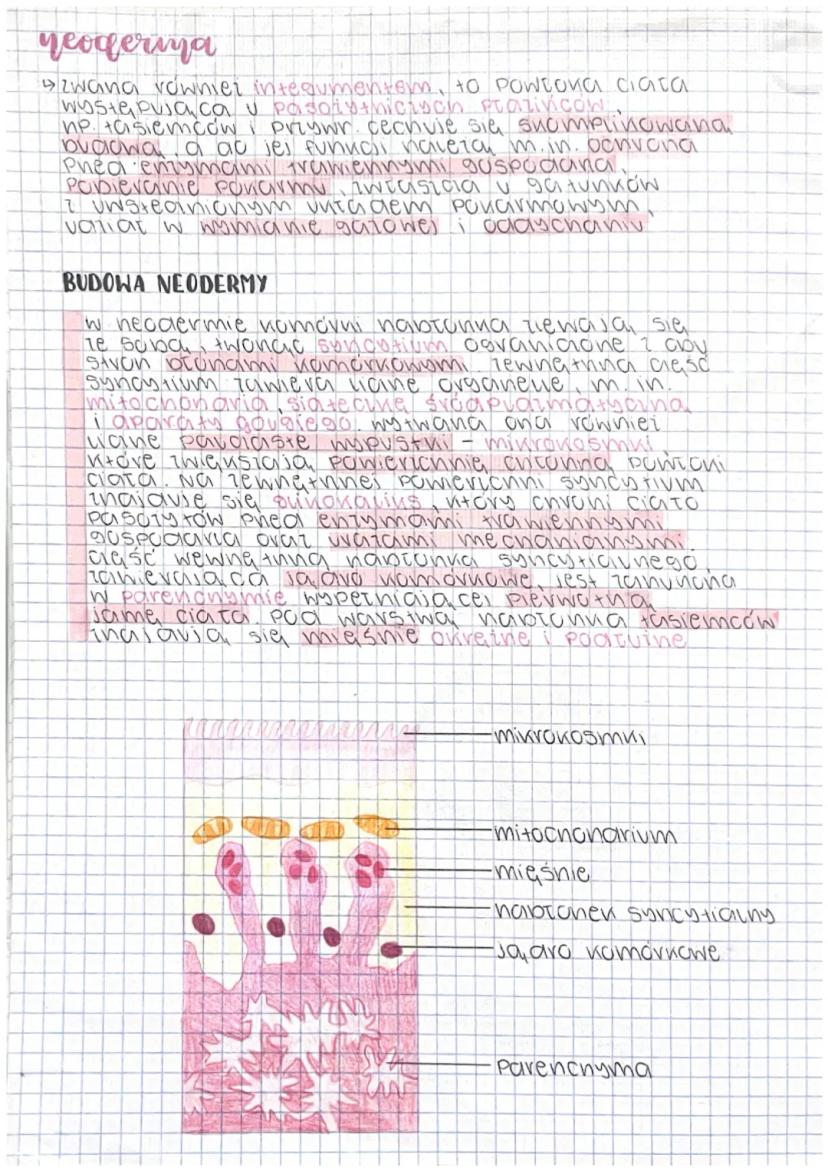 neoderma
↳ zwana również integumentem, to powłoka ciała
występująca u pasożytniczych płazińców,
np. tasiemców i przywr. cechuje się skomplikowaną
budową, a do jej funkcji należą m.in. ochrona
przed enzymami trawiennymi gospodarza,
pobieranie pokarmu, zwłaszcza u gatunków
z uwstecznionym układem pokarmowym,
udział w wymianie gazowej i oddychaniu
BUDOWA NEODERMY
w neodermie komórki nabłonka zlewają się
ze sobą, tworząc syncytium ograniczone z obu
stron błonami komórkowymi. zewnętrzna część
syncytium zawiera liczne organelle, m. in.
mitochondria, siateczkę śródplazmatyczną
i aparaty golgiego. wytwarza ona również
liczne palczaste wypustki - mikrokosmki
które zwiększają powierzchnię chłonną powłoki
ciała. Na zewnętrznej powierzchni syncytium
znajduje się glikokaliks, który chroni ciało
pasożytów przed enzymami trawiennymi
gospodarza oraz urazami mechanicznymi.
część wewnętrzna nabłonka syncytialnego,
zawierająca jądro komórkowe, jest zanurzona
w parenchymie wypełniającej pierwotną
jamę ciała. Pod warstwą nabłonka tasiemców
znajdują się mięśnie okrężne i podłużne
mikrokosmki
mitochondrium
mięśnie
nabłonek syncytialny
jądro komórkowe
parenchyma